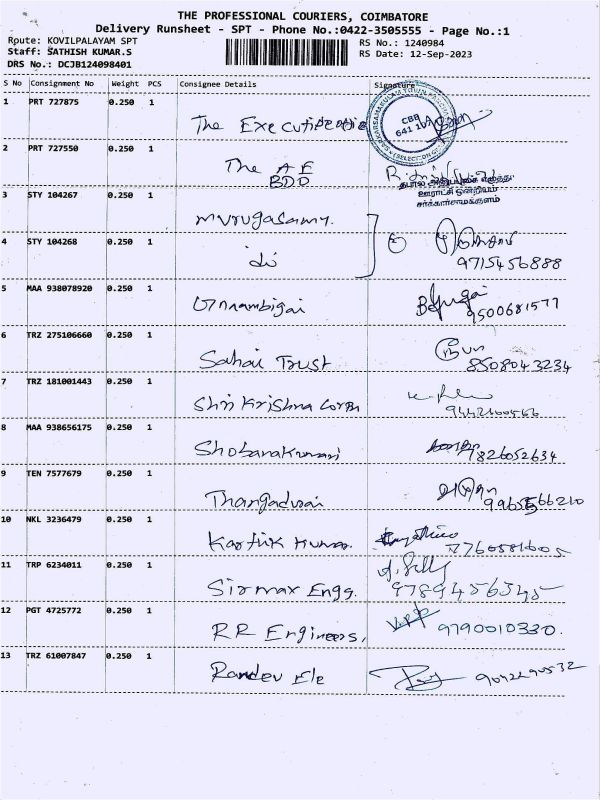 THE PROFESSIONAL COURIERS, COIMBATORE
Delivery Runsheet - SPT - Phone No.:0422-3505555 - Page No.:1
Route: KOVILPALAYAM SPT
RS No.: 1240984
Staff: SATHISH KUMAR.S
RS Date: 12-Sep-2023
DRS No.: DCJB124098401
S No Consignment No Weight PCS Consignee Details Signature
1 PRT 727875 0.250 1
The Executive
CBB
641 107
2 PRT 727550 0.250 1
The A E
BDO
ஊராட்சி ஒன்றியம்
சர்க்கார்சாமக்குளம்
3 STY 104267 0.250 1
Murugasamy.
4 STY 104268 0.250 1
9715456888
5 MAA 938078920 0.250 1
9500681577
6 TRZ 275106660 0.250 1
Sahai Trust
8508043234
7 TRZ 181001443 0.250 1
Shri Krishna Corpn
8 MAA 938656175 0.250 1
Shobanakumari
9826052634
9 TEN 7577679 0.250 1
Thangadurai
10 NKL 3236479 0.250 1
Karthik Kumar.
7760581605
11 TRP 6234011 0.250 1
Sirmax Engg.
9789456345
12 PGT 4725772 0.250 1
RR Engineers,
9790010330.
13 TRZ 61007847 0.250 1
Randev Ele